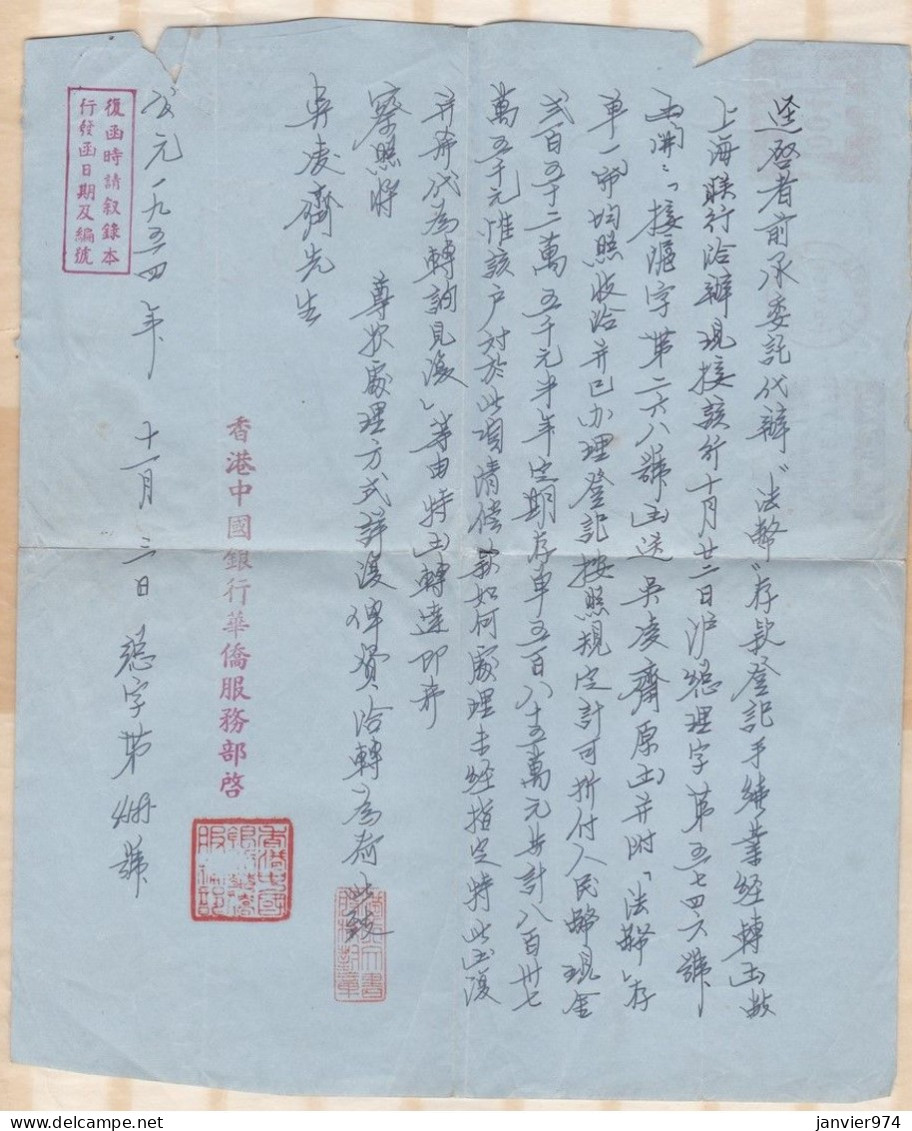 逕啓者前承委託代辦“法幣”存款登記手續業經轉函敝
上海聯行洽辦現接該行十月廿二日沪總理字第五七四六號
函開：「接滙字第二六八號函送吳凌齊原函并附「法幣」存
單一部均照收洽并已办理登記按照規定計可折付人民幣現金
弍百五十二萬五千元半年定期存单五百八十五萬元共計八百卅七
萬五千元惟該户对於此項清偿款如何處理未经指定特此函復
并希代為轉詢見復」等由特函轉達即希
察照将 尊欵處理方式詳復俾資洽轉為荷此致
吳凌齊先生
香港中國銀行華僑服務部啓
公元一九五四年 十一月 三日 總字第 號
復函時請叙錄本
行發函日期及編號
janvier974
delcampe.net